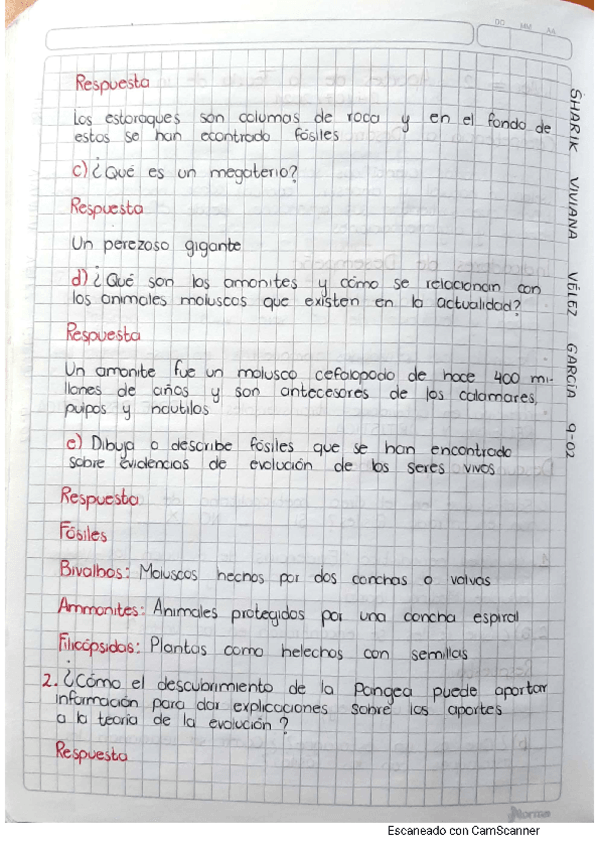 DD MM AA
Respuesta
Los estoraques son columas de roca y en el fondo de
estos se han econtrado fósiles
c) ¿Qué es un megaterio?
Respuesta
Un perezoso gigante
d) ¿Qué son los amonites y cómo se relacionan con
los animales moluscos que existen en la actualidad?
Respuesta
Un amonite fue un molusco cefalopodo de hace 400 mi-
llones de años y son antecesores de los calamares,
pulpos y nautilos
e) Dibuja o describe fósiles que se han encontrado
sobre evidencias de evolución de los seres vivos
Respuesta
Fósiles
Bivalbos: Moluscos hechos por dos conchas o valvas
Ammonites: Animales protegidos por una concha espiral
Filicópsidas: Plantas como helechos con semillas
2. ¿Cómo el descubrimiento de la Pangea puede aportar
información para dar explicaciones sobre los aportes
a la teoría de la evolución?
Respuesta
SHARIK VIVIANA VÉLEZ GARCÍA 9-02
Norma
Escaneado con CamScanner